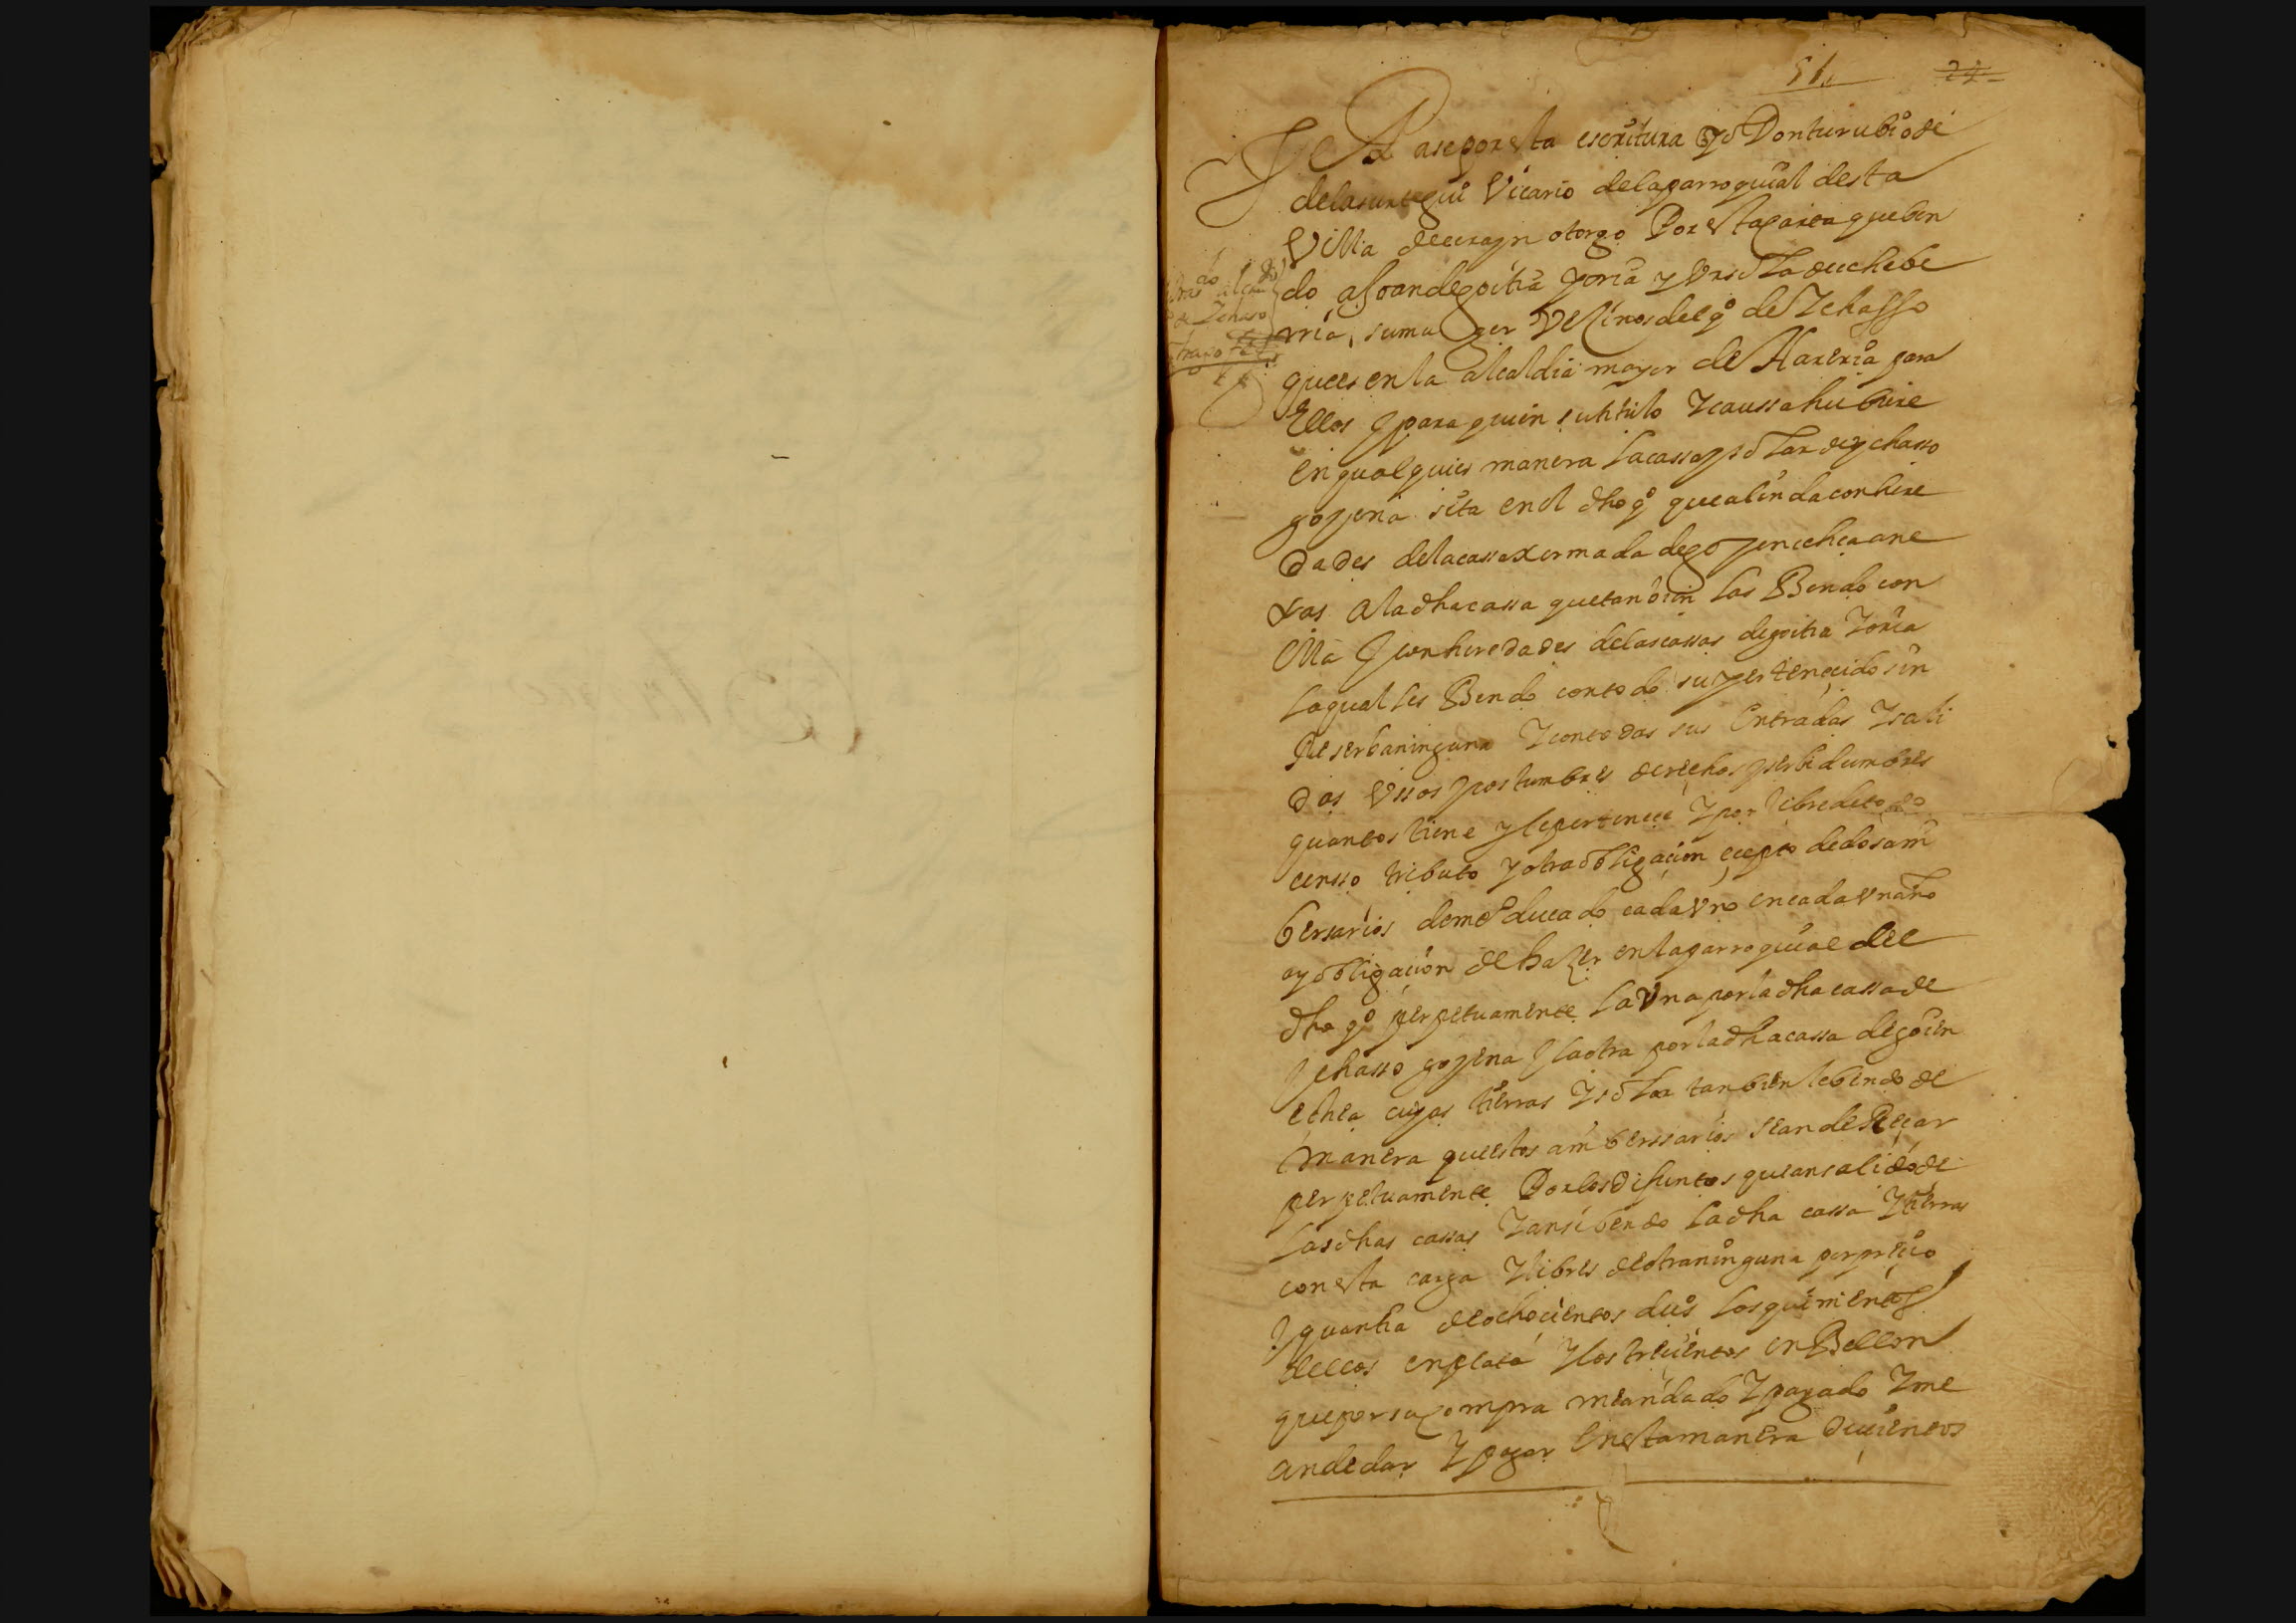 51.
24
Pase por esta escritura yo Don turubio de
de lasurtegui Vicario de la parroquial desta
Villa de ecrayn otorgo Por esta carta que ben
do a Joan de goitia yoria y Ursola de echebe
rria, su muger Vezinos del q.o de Ychasso
que es en la alcaldia mayor de Areria para
Ellos y para quien su titulo y caussa hubiere
en qualquier manera la cassa y solar de ychasso
goyena sita en el dho q.o que alinda con here
dades de la cassa xermada de goyenechea ane
xas a la dha cassa que tanbien las Bendo con
Ella y con heredades de las cassas de goitia Yoria
la qual les Bendo con todo su pertenecido sin
Reserba ninguna Y con todas sus Entradas Y sali
das Vssos y costumbres derechos y serbidumbres
quantos tiene y le pertenece Y por libre de todo
censso tributo y otra obligacion ecepto de dos ani
bersarios de m.o ducado cada vno en cada vn año
ay obligacion de hazer en la parroquial del
dho q.o perpetuamente la Vna por la dha cassa de
ychasso goyena y la otra por la dha cassa de goien
echea cuyas tierras Y solar tanbien le bendo de
manera que estos anibersarios sean de Reçar
perpetuamente Por los difuntos que an salido de
las dhas cassas Y ansi bendo la dha cassa Y tierras
con esta carga Y libres de otra ninguna por precio
y quantia de ochocientos du.os los quinientos
dellos en plata Y los trecientos en Bellon
que por su compra me an dado Y pagado Y me
an de dar Y pagar En esta manera Ducientos